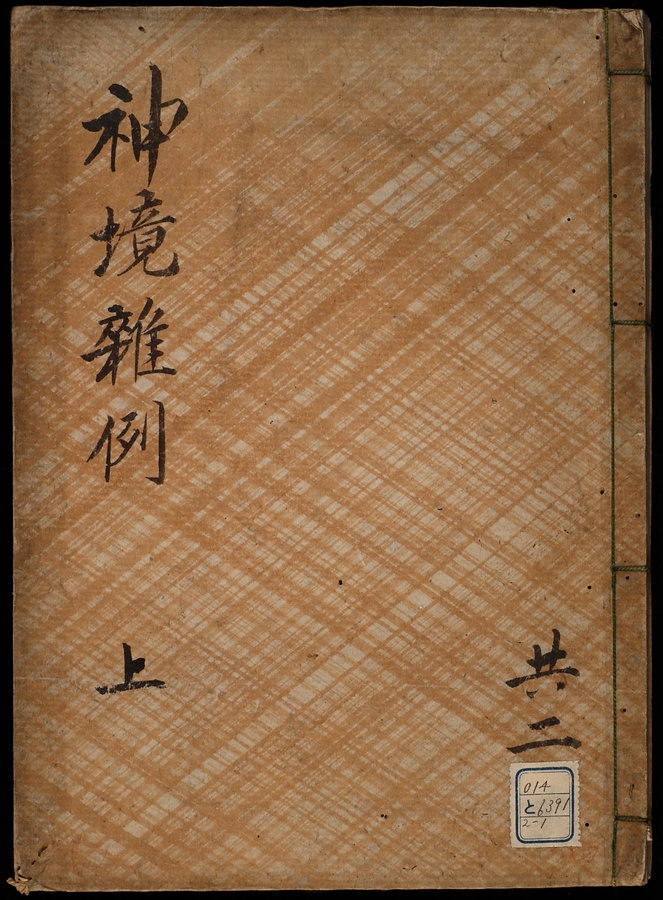 共二
神境雜例
上
014
と6391
2-1